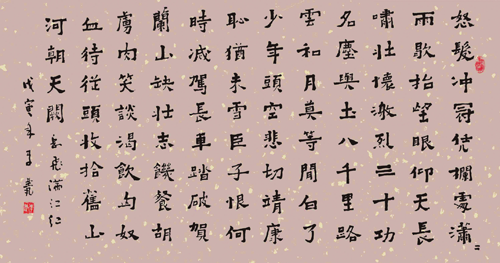 怒髮冲冠凭欄處瀟〻
雨歇抬望眼仰天長
嘯壯懷激烈三十功
名塵與土八千里路
雲和月莫等閒白了
少年頭空悲切靖康
恥猶未雪臣子恨何
時滅駕長車踏破賀
蘭山缺壯志饑餐胡
虜肉笑談渴飲匈奴
血待從頭收拾舊山
河朝天闕 岳飛滿江红
戊寅